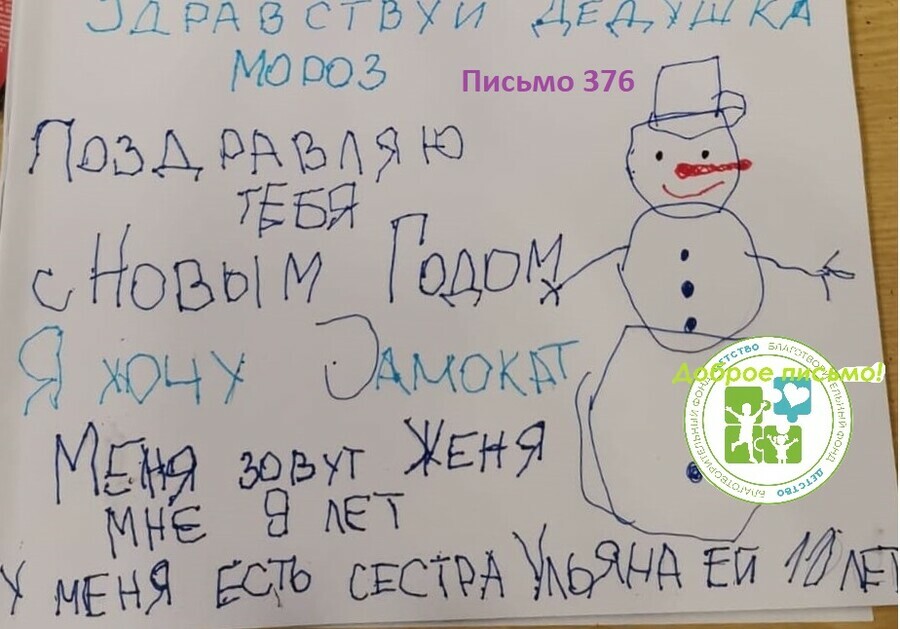 ЗДРАВСТВУЙ ДЕДУШКА
МОРОЗ
Письмо 376
ПОЗДРАВЛЯЮ
ТЕБЯ
С НОВЫМ ГОДОМ
Я ХОЧУ САМОКАТ
МЕНЯ ЗОВУТ ЖЕНЯ
МНЕ 9 ЛЕТ
У МЕНЯ ЕСТЬ СЕСТРА УЛЬЯНА ЕЙ 11 ЛЕТ
Доброе письмо!
БЛАГОТВОРИТЕЛЬНЫЙ ФОНД ДЕТСТВО БЛАГОТВОРИТЕЛЬНЫЙ ФОНД ДЕТСТВО